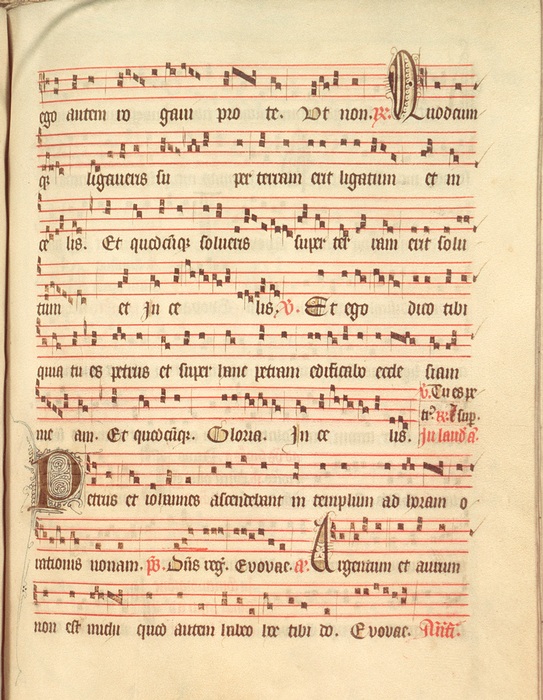 ego autem ro gaui pro te. Vt non. R. Quodcum
q3 ligaueris su per terram erit ligatum et in
ce lis. Et quodcūq3 solueris super ter ram erit solu
tum et In ce lis. V. Et ego dico tibi
quia tu es petrus et super hanc petram edificabo eccle siam
V. Tu es pe
me am. Et quodcūq3. Gloria. In ce lis.
In laud a.
Petrus et iohannes ascendebant in templum ad horam o
rationis nonam. ps. Dn̄s reg. Evovae. a. Argentum et aurum
non est michi quod autem habeo hoc tibi do. Evovae. Anti.